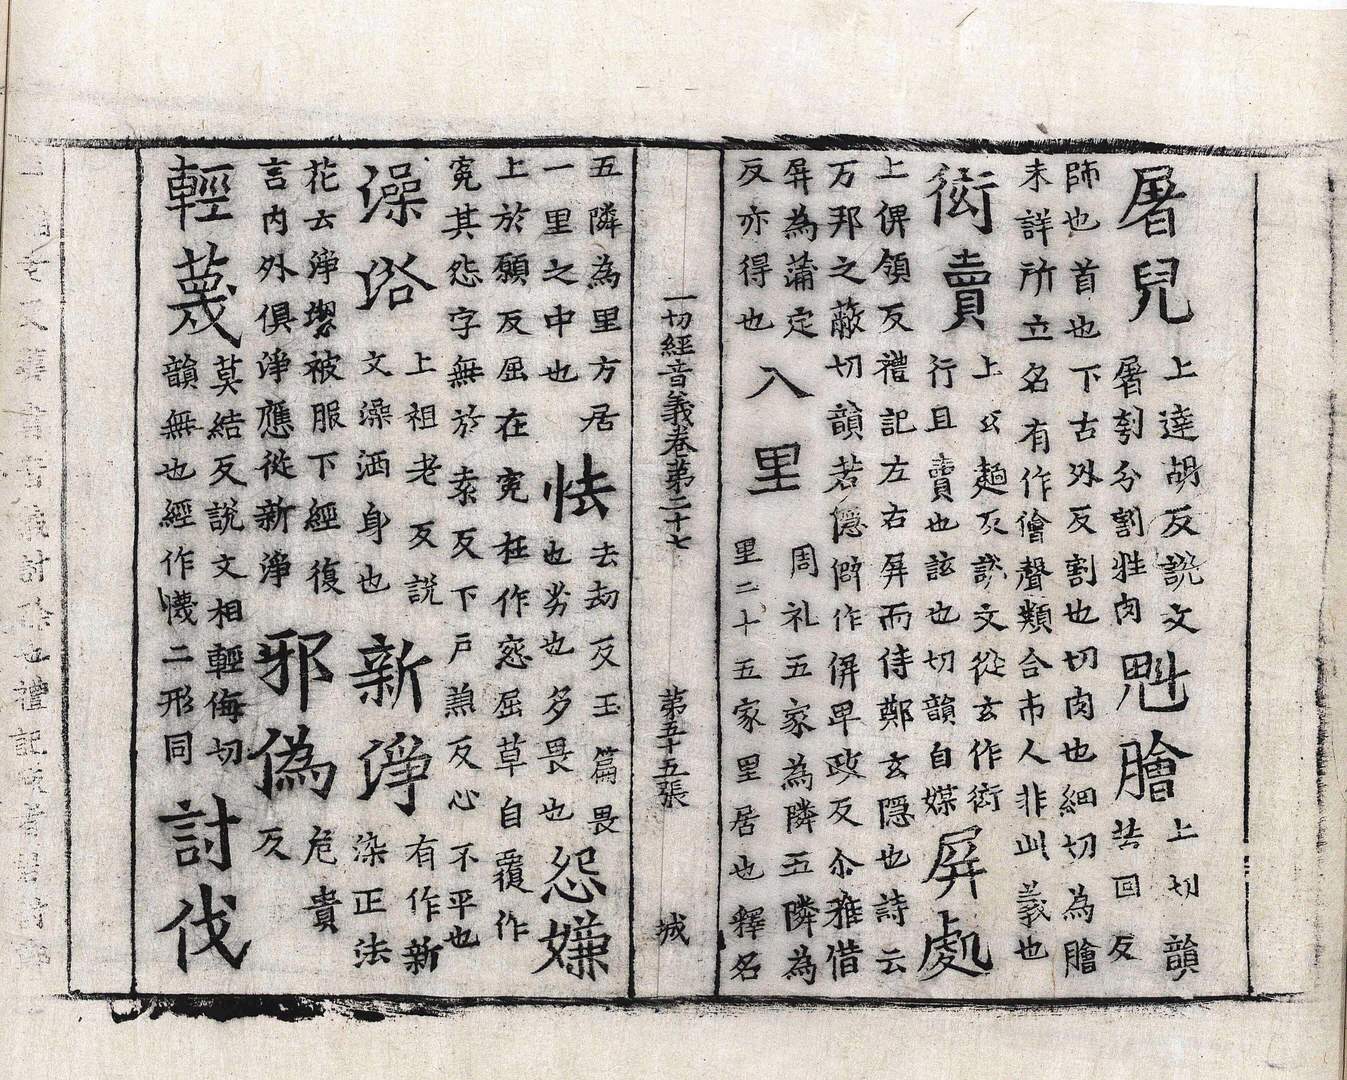 屠兒
上達胡反說文
屠刳分割牲肉
魁膾
上切韻
苦回反
師也首也下古外反割也切肉也細切為膾
未詳所立名有作儈聲類合市人非此義也
衒賣
上公麺反說文從玄作衒
行且賣也該也切韻自媒
屏處
上俾領反禮記左右屏而侍鄭玄隱也詩云
万邦之蔽切韻若隱僻作偋卑政反尒雅借
屏為蒲定
反亦得也
入里
周礼五家為隣五隣為
里二十五家里居也釋名
一切經音義卷第二十七 第五十五張 城
五隣為里方居
一里之中也
怯
去劫反玉篇畏
也劣也多畏也
怨嫌
上於願反屈在冤枉作怨屈草自覆作
冤其怨字無於袁反下戶蒹反心不平也
澡浴
上祖老反說
文澡洒身也
新淨
有作新
染正法
花云淨潔被服下經復
言內外俱淨應從新淨
邪偽
危貴
反
輕蔑
莫結反說文相輕侮切
韻無也經作懱二形同
討伐